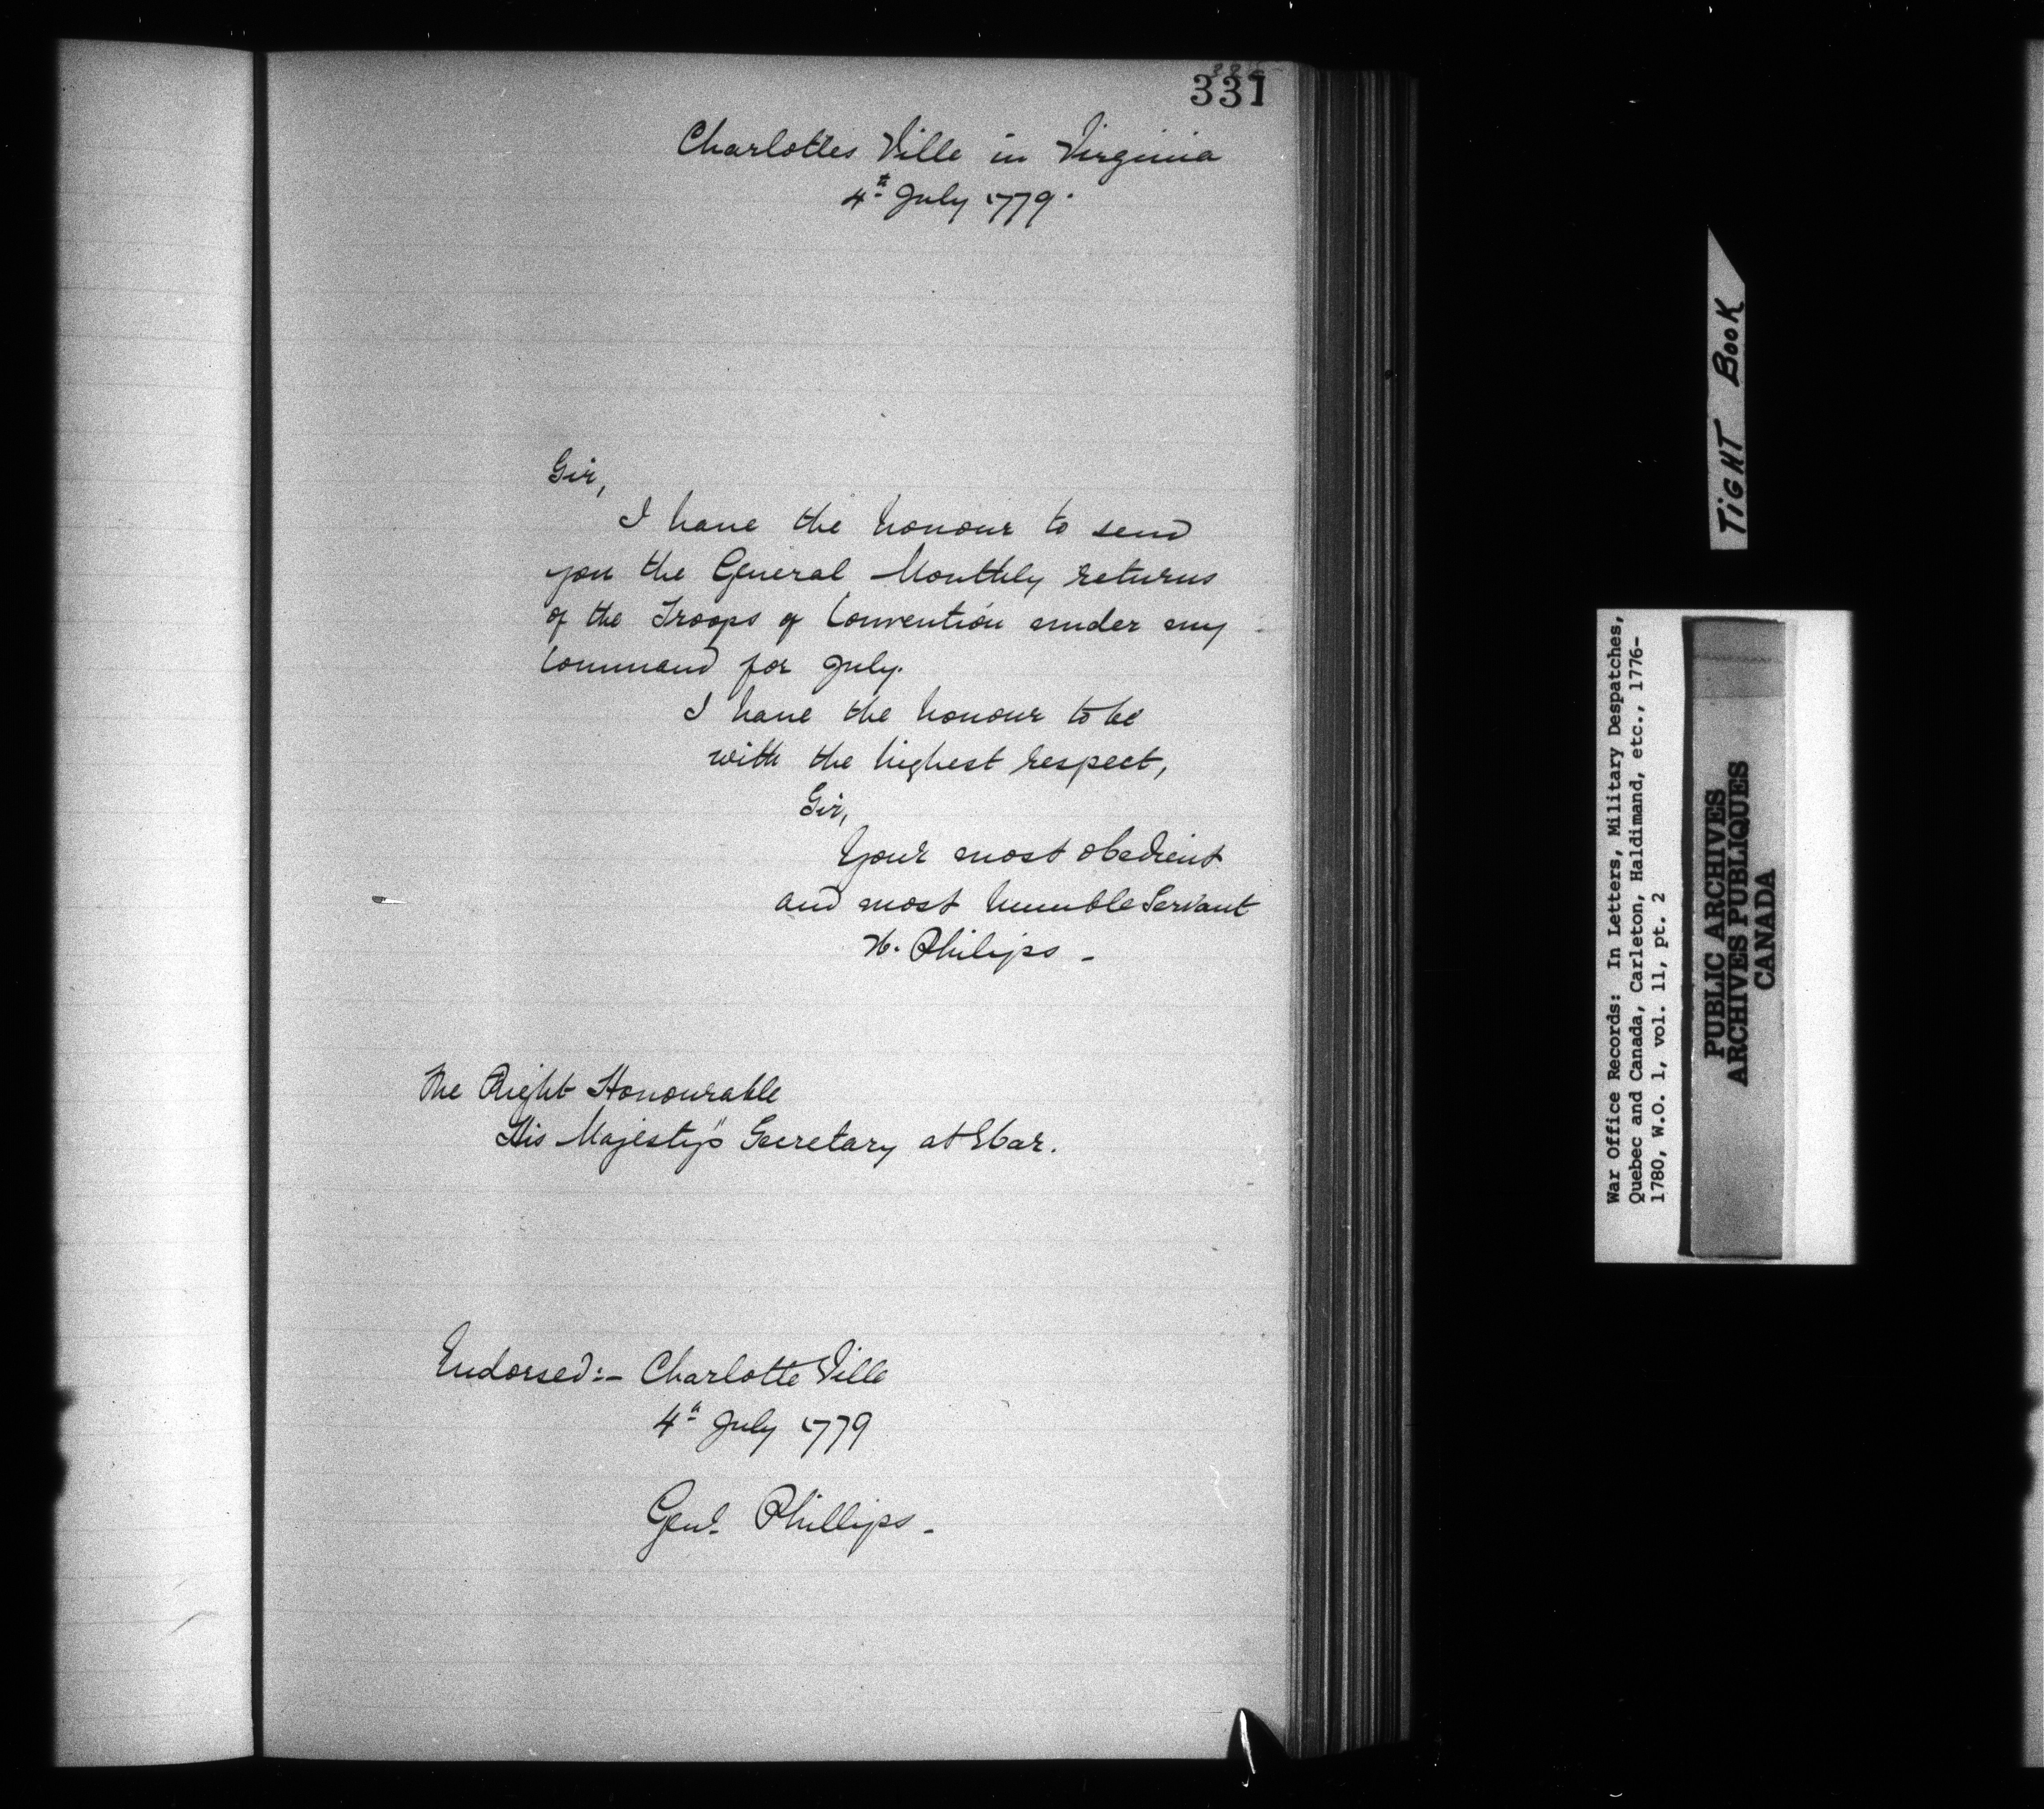 331
Charlottes Ville in Virginia
4th July 1779.
Sir,
I have the honour to send
you the General Monthly returns
of the Troops of Convention under my
Command for July.
I have the honour to be
with the highest respect,
Sir,
Your most obedient
and most humble Servant
W. Philips -
The Right Honourable
His Majesty's Secretary at War.
Endorsed:- Charlotte Ville
4th July 1779
Genl. Phillips -
TIGHT BOOK
War Office Records: In Letters, Military Despatches,
Quebec and Canada, Carleton, Haldimand, etc., 1776-
1780, W.O. 1, vol. 11, pt. 2
PUBLIC ARCHIVES
ARCHIVES PUBLIQUES
CANADA